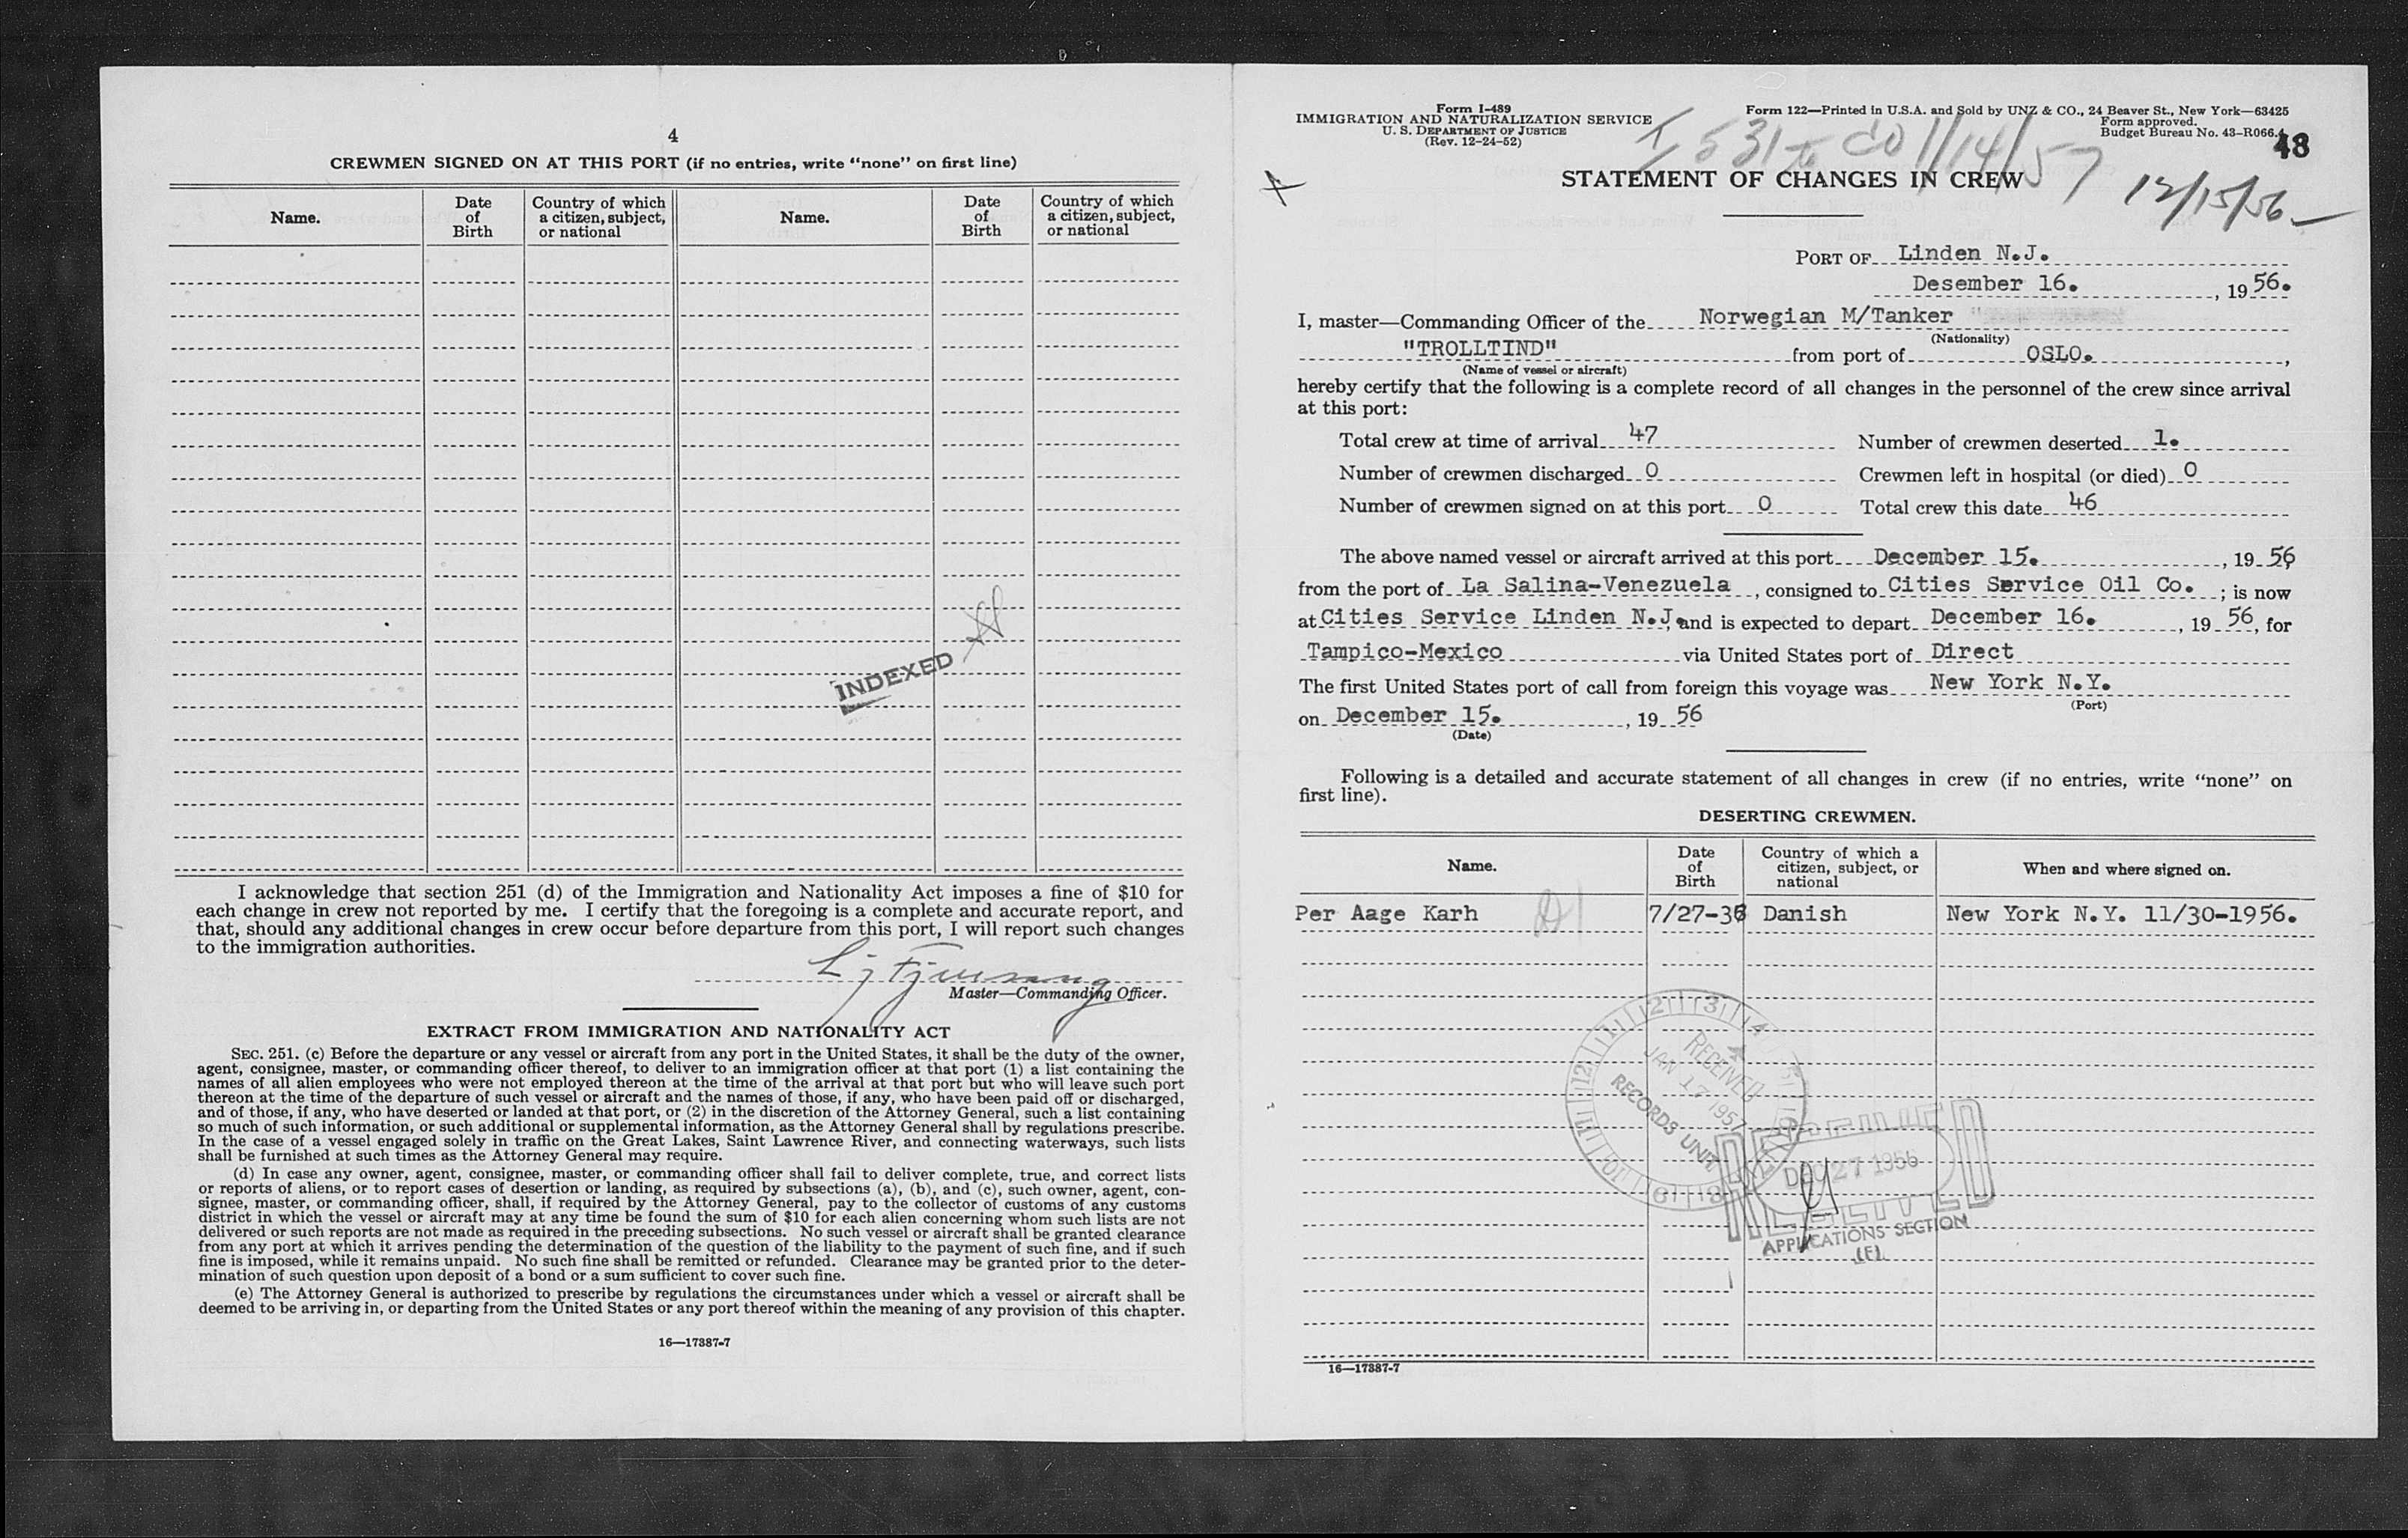 4
CREWMEN SIGNED ON AT THIS PORT (if no entries, write “none” on first line)
Name.
Date of Birth
Country of which a citizen, subject, or national
Name.
Date of Birth
Country of which a citizen, subject, or national
INDEXED
I acknowledge that section 251 (d) of the Immigration and Nationality Act imposes a fine of $10 for
each change in crew not reported by me. I certify that the foregoing is a complete and accurate report, and
that, should any additional changes in crew occur before departure from this port, I will report such changes
to the immigration authorities.
Master—Commanding Officer.
EXTRACT FROM IMMIGRATION AND NATIONALITY ACT
SEC. 251. (c) Before the departure or any vessel or aircraft from any port in the United States, it shall be the duty of the owner,
agent, consignee, master, or commanding officer thereof, to deliver to an immigration officer at that port (1) a list containing the
names of all alien employees who were not employed thereon at the time of the arrival at that port but who will leave such port
thereon at the time of the departure of such vessel or aircraft and the names of those, if any, who have been paid off or discharged,
and of those, if any, who have deserted or landed at that port, or (2) in the discretion of the Attorney General, such a list containing
so much of such information, or such additional or supplemental information, as the Attorney General shall by regulations prescribe.
In the case of a vessel engaged solely in traffic on the Great Lakes, Saint Lawrence River, and connecting waterways, such lists
shall be furnished at such times as the Attorney General may require.
(d) In case any owner, agent, consignee, master, or commanding officer shall fail to deliver complete, true, and correct lists
or reports of aliens, or to report cases of desertion or landing, as required by subsections (a), (b), and (c), such owner, agent, con-
signee, master, or commanding officer, shall, if required by the Attorney General, pay to the collector of customs of any customs
district in which the vessel or aircraft may at any time be found the sum of $10 for each alien concerning whom such lists are not
delivered or such reports are not made as required in the preceding subsections. No such vessel or aircraft shall be granted clearance
from any port at which it arrives pending the determination of the question of the liability to the payment of such fine, and if such
fine is imposed, while it remains unpaid. No such fine shall be remitted or refunded. Clearance may be granted prior to the deter-
mination of such question upon deposit of a bond or a sum sufficient to cover such fine.
(e) The Attorney General is authorized to prescribe by regulations the circumstances under which a vessel or aircraft shall be
deemed to be arriving in, or departing from the United States or any port thereof within the meaning of any provision of this chapter.
16—17387-7
Form I-489
IMMIGRATION AND NATURALIZATION SERVICE
U. S. DEPARTMENT OF JUSTICE
(Rev. 12-24-52)
Form 122—Printed in U.S.A. and Sold by UNZ & CO., 24 Beaver St., New York—63425
Form approved.
Budget Bureau No. 43-R066.
48
531 to CO 1/14/57
12/15/56
STATEMENT OF CHANGES IN CREW
PORT OF Linden N.J.
Desember 16. , 19 56.
I, master—Commanding Officer of the Norwegian M/Tanker
(Nationality)
"TROLLTIND" from port of OSLO. ,
(Name of vessel or aircraft)
hereby certify that the following is a complete record of all changes in the personnel of the crew since arrival
at this port:
Total crew at time of arrival 47 Number of crewmen deserted 1.
Number of crewmen discharged 0 Crewmen left in hospital (or died) 0
Number of crewmen signed on at this port 0 Total crew this date 46
The above named vessel or aircraft arrived at this port December 15. , 19 56
from the port of La Salina-Venezuela , consigned to Cities Service Oil Co. ; is now
at Cities Service Linden N.J. and is expected to depart December 16. , 19 56, for
Tampico-Mexico via United States port of Direct
The first United States port of call from foreign this voyage was New York N.Y.
(Port)
on December 15. , 19 56
(Date)
Following is a detailed and accurate statement of all changes in crew (if no entries, write “none” on
first line).
DESERTING CREWMEN.
Name.
Date of Birth
Country of which a citizen, subject, or national
When and where signed on.
Per Aage Karh 7/27-38 Danish New York N.Y. 11/30-1956.
RECEIVED
JAN 17 1957
RECORDS UNIT
RECEIVED
DEC 27 1956
APPLICATIONS SECTION
(E)
16—17387-7